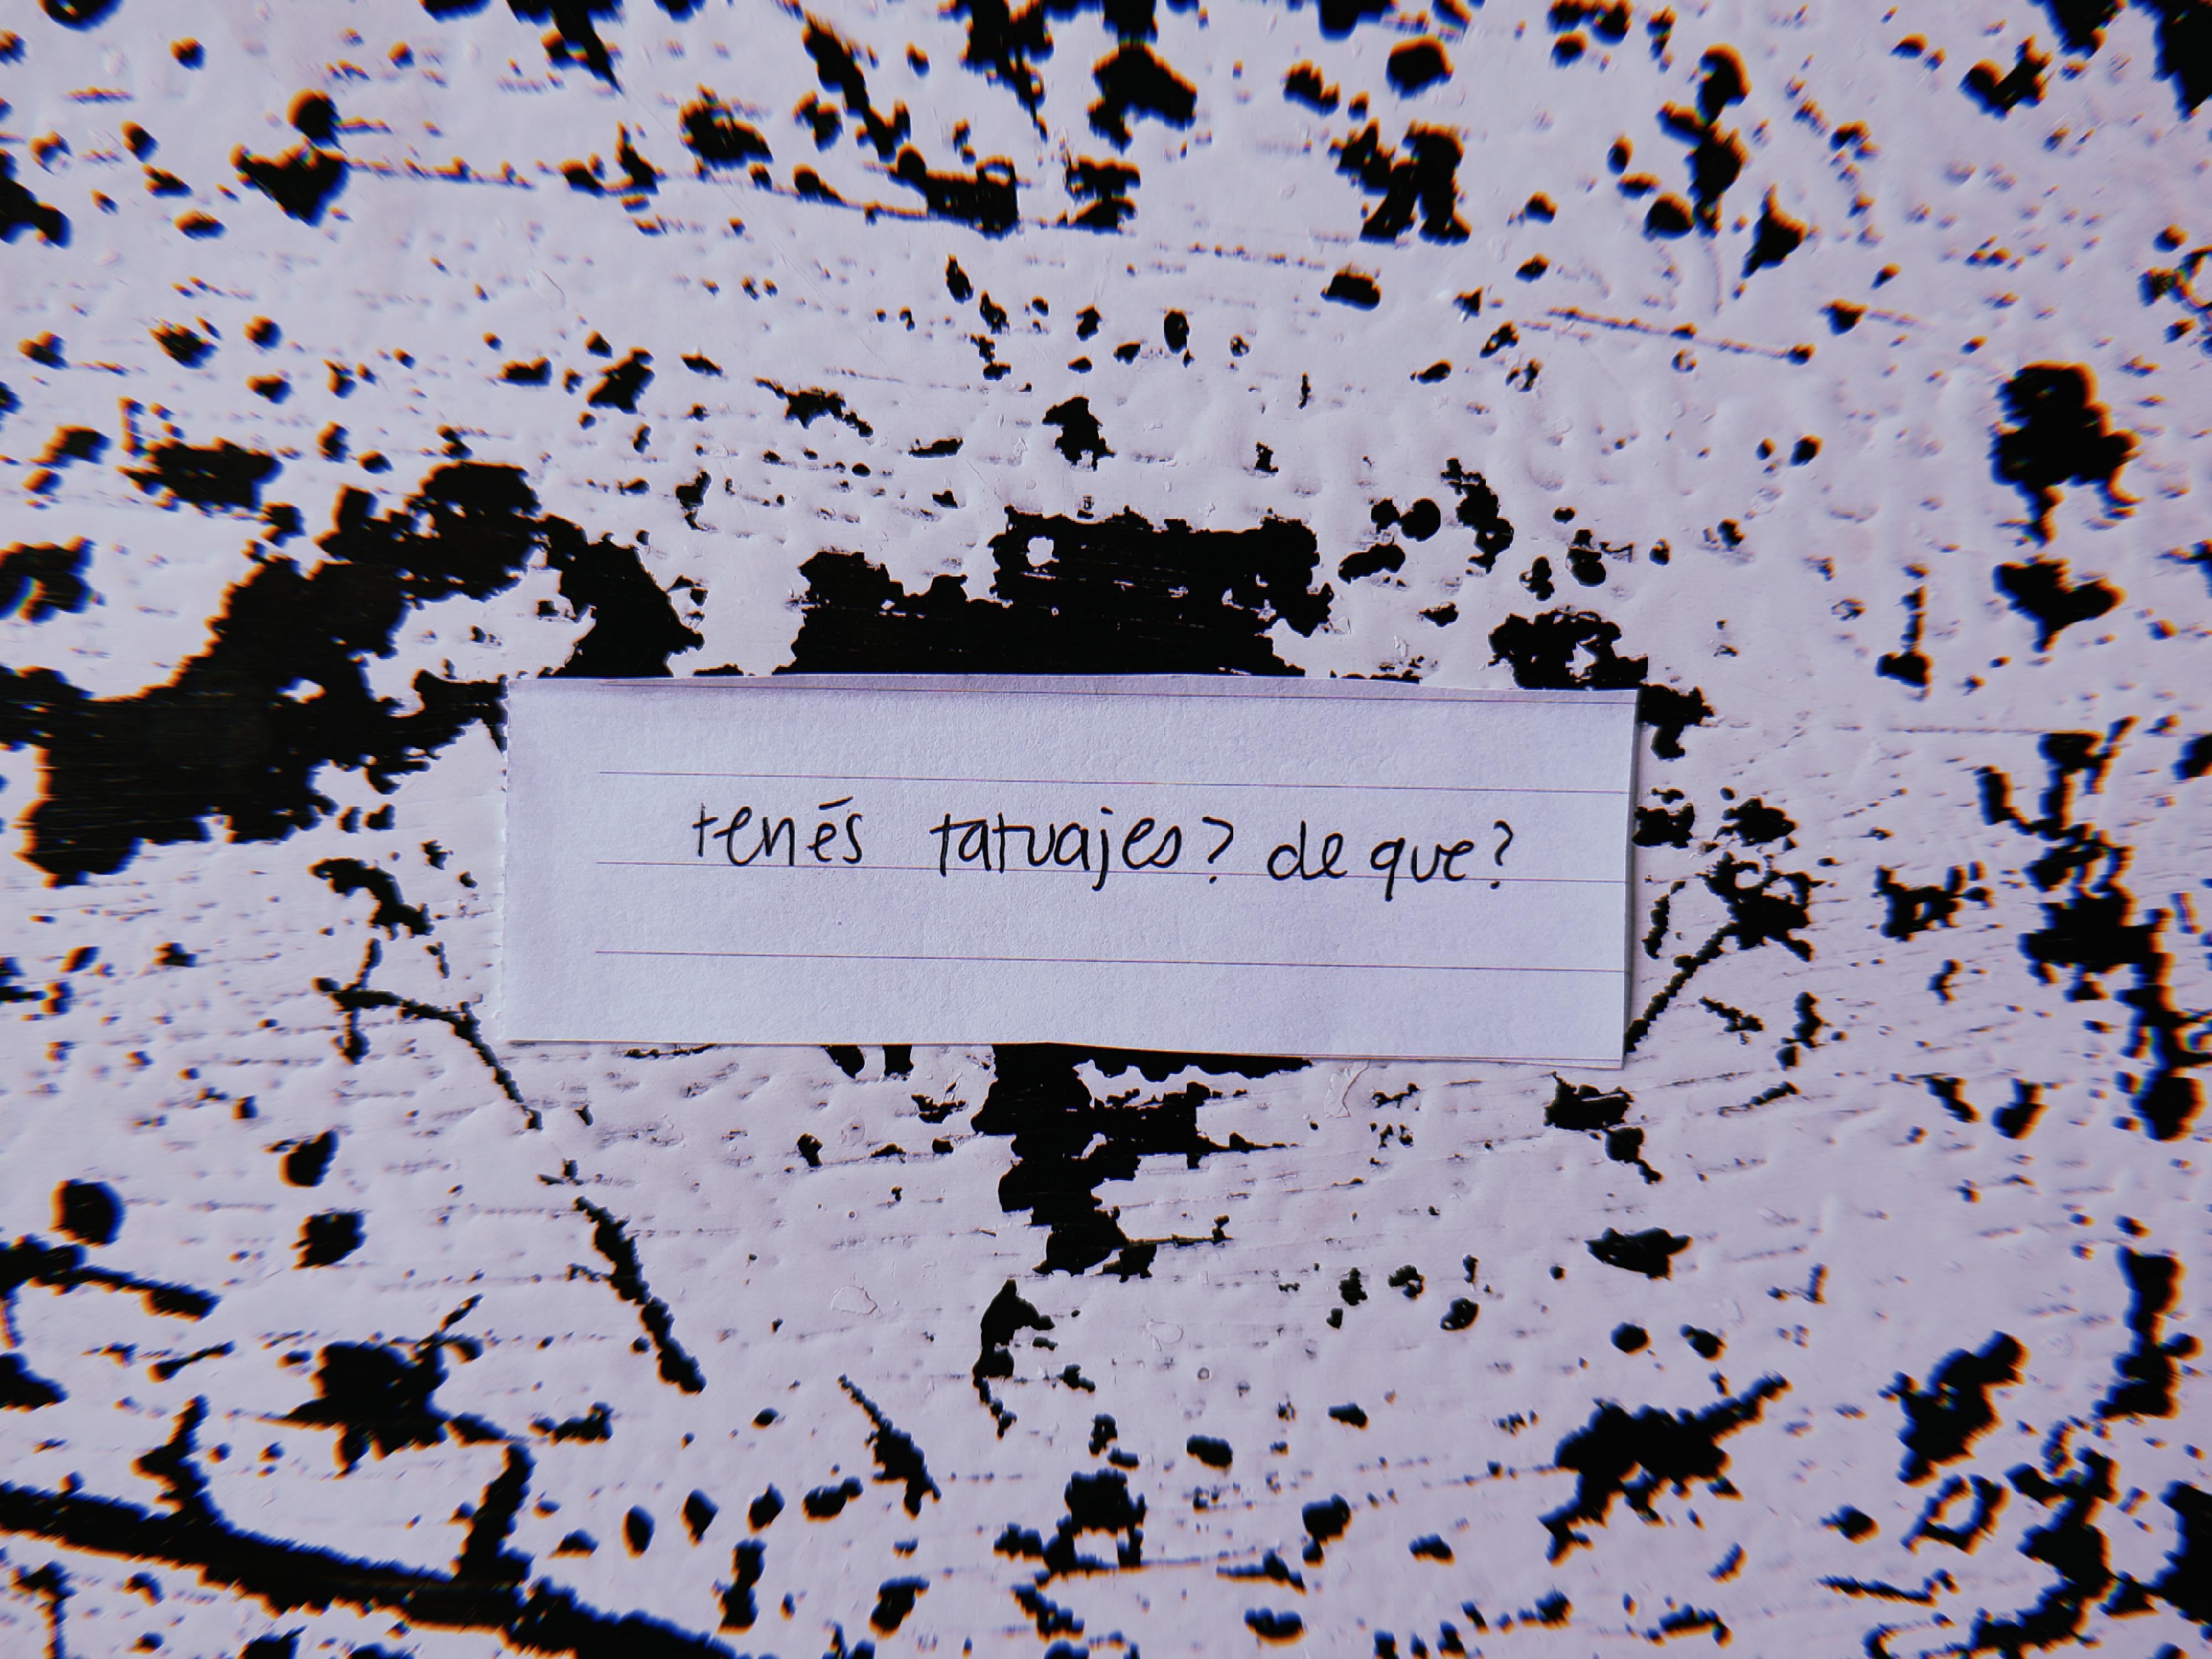 tenés tatuajes? de que?